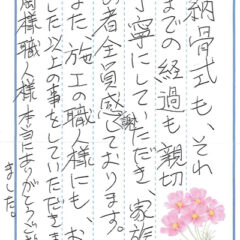 納骨式も、それ
までの経過も親切
丁寧にしていただき、家族
の者全員感謝しております。
また、施工の職人様にも、お
した以上の事をしていただきま
職人様本当にありがとうござ
ました。